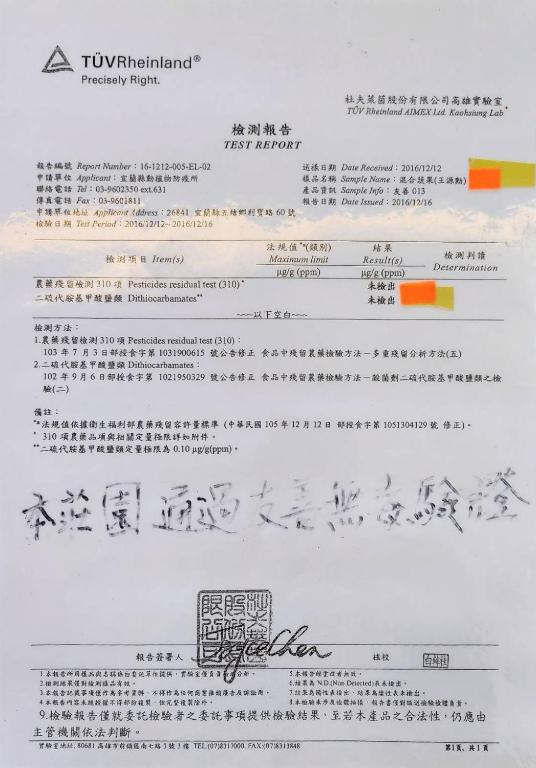 TÜVRheinland®
Precisely Right.
杜夫萊茵股份有限公司高雄實驗室
TÜV Rheinland AIMEX Ltd. Kaohsiung Lab
檢測報告
TEST REPORT
報告編號 Report Number：16-1212-005-EL-02
送樣日期 Date Received：2016/12/12
申請單位 Applicant：宜蘭縣動植物防疫所
樣品名稱 Sample Name：混合蔬果(王源勳)
聯絡電話 Tel：03-9602350 ext.631
產品資訊 Sample Info：友善 013
傳真電話 Fax：03-9601811
報告日期 Date Issued：2016/12/16
申請單位地址 Applicant Address：26841 宜蘭縣五結鄉利寶路 60 號
檢驗日期 Test Period：2016/12/12~2016/12/16
檢測項目 Item(s) 法規值**(類別) Maximum limit μg/g (ppm) 結果 Result(s) μg/g (ppm) 檢測判讀 Determination
農藥殘留檢測 310 項 Pesticides residual test (310)* 未檢出
二硫代胺基甲酸鹽類 Dithiocarbamates** 未檢出
~~以下空白~~
檢測方法：
1.農藥殘留檢測 310 項 Pesticides residual test (310)：
103 年 7 月 3 日部授食字第 1031900615 號公告修正 食品中殘留農藥檢驗方法－多重殘留分析方法(五)
2.二硫代胺基甲酸鹽類 Dithiocarbamates：
102 年 9 月 6 日部授食字第 1021950329 號公告修正 食品中殘留農藥檢驗方法－殺菌劑二硫代胺基甲酸鹽類之檢
驗(二)
備註：
法規值依據衛生福利部農藥殘留容許量標準 (中華民國 105 年 12 月 12 日 部授食字第 1051304129 號 修正)。
* 310 項農藥品項與相關定量極限詳如附件。
**二硫代胺基甲酸鹽類定量極限為 0.10 μg/g(ppm)。
本莊園通過友善無毒驗證
報告簽署人
核校
1.本報告所用樣品與名稱係由委託單位提供，實驗室僅負責
5.本報告經塗改無效。
2.檢測結果僅對檢測樣品有效。
6.結果為 N.D.(Non Detected)表未檢出。
3.本報告記載事項僅作為參考資料，不得作為任何商業推銷廣告及訴訟用。
7.結果為陽性表檢出，結果為陰性表未檢出。
9.檢驗報告僅就委託檢驗者之委託事項提供檢驗結果，至若本產品之合法性，仍應由
主管機關依法判斷。
實驗室地址: 80681 高雄市前鎮區南七路 3 號 3 樓 TEL:(07)8317000. FAX:(07)8313848
第1頁，共 1 頁